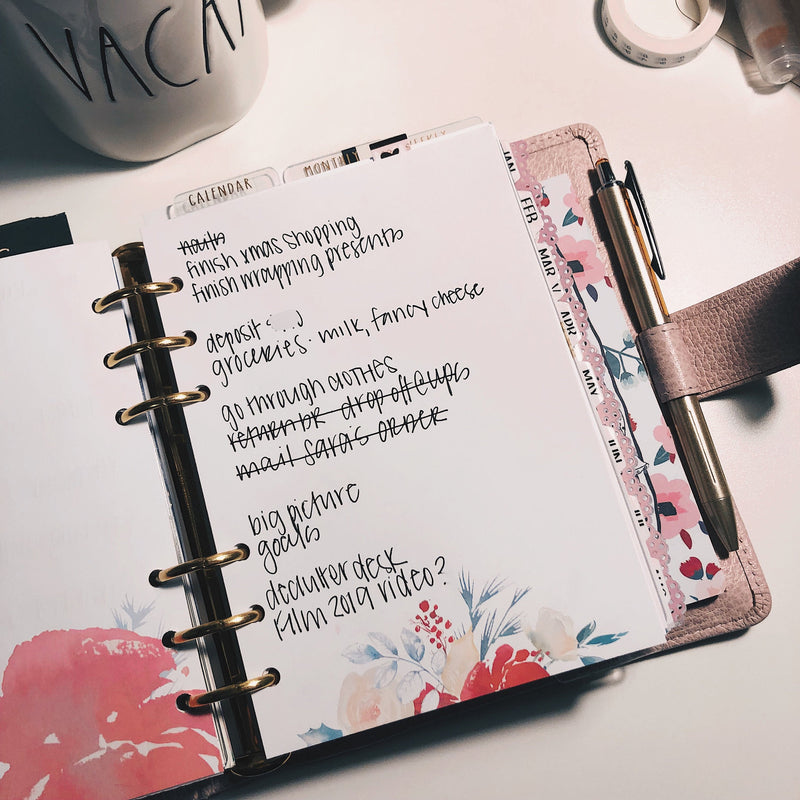 VACA
CALENDAR
MONTH
WEEKLY
JAN
FEB
MAR
APR
MAY
JUN
nails
finish xmas shopping
finish wrapping presents
deposit
groceries. milk, fancy cheese
go through clothes
drop off eups
mail Sara's order
big picture
goals
declutter desk
Film 2019 video?